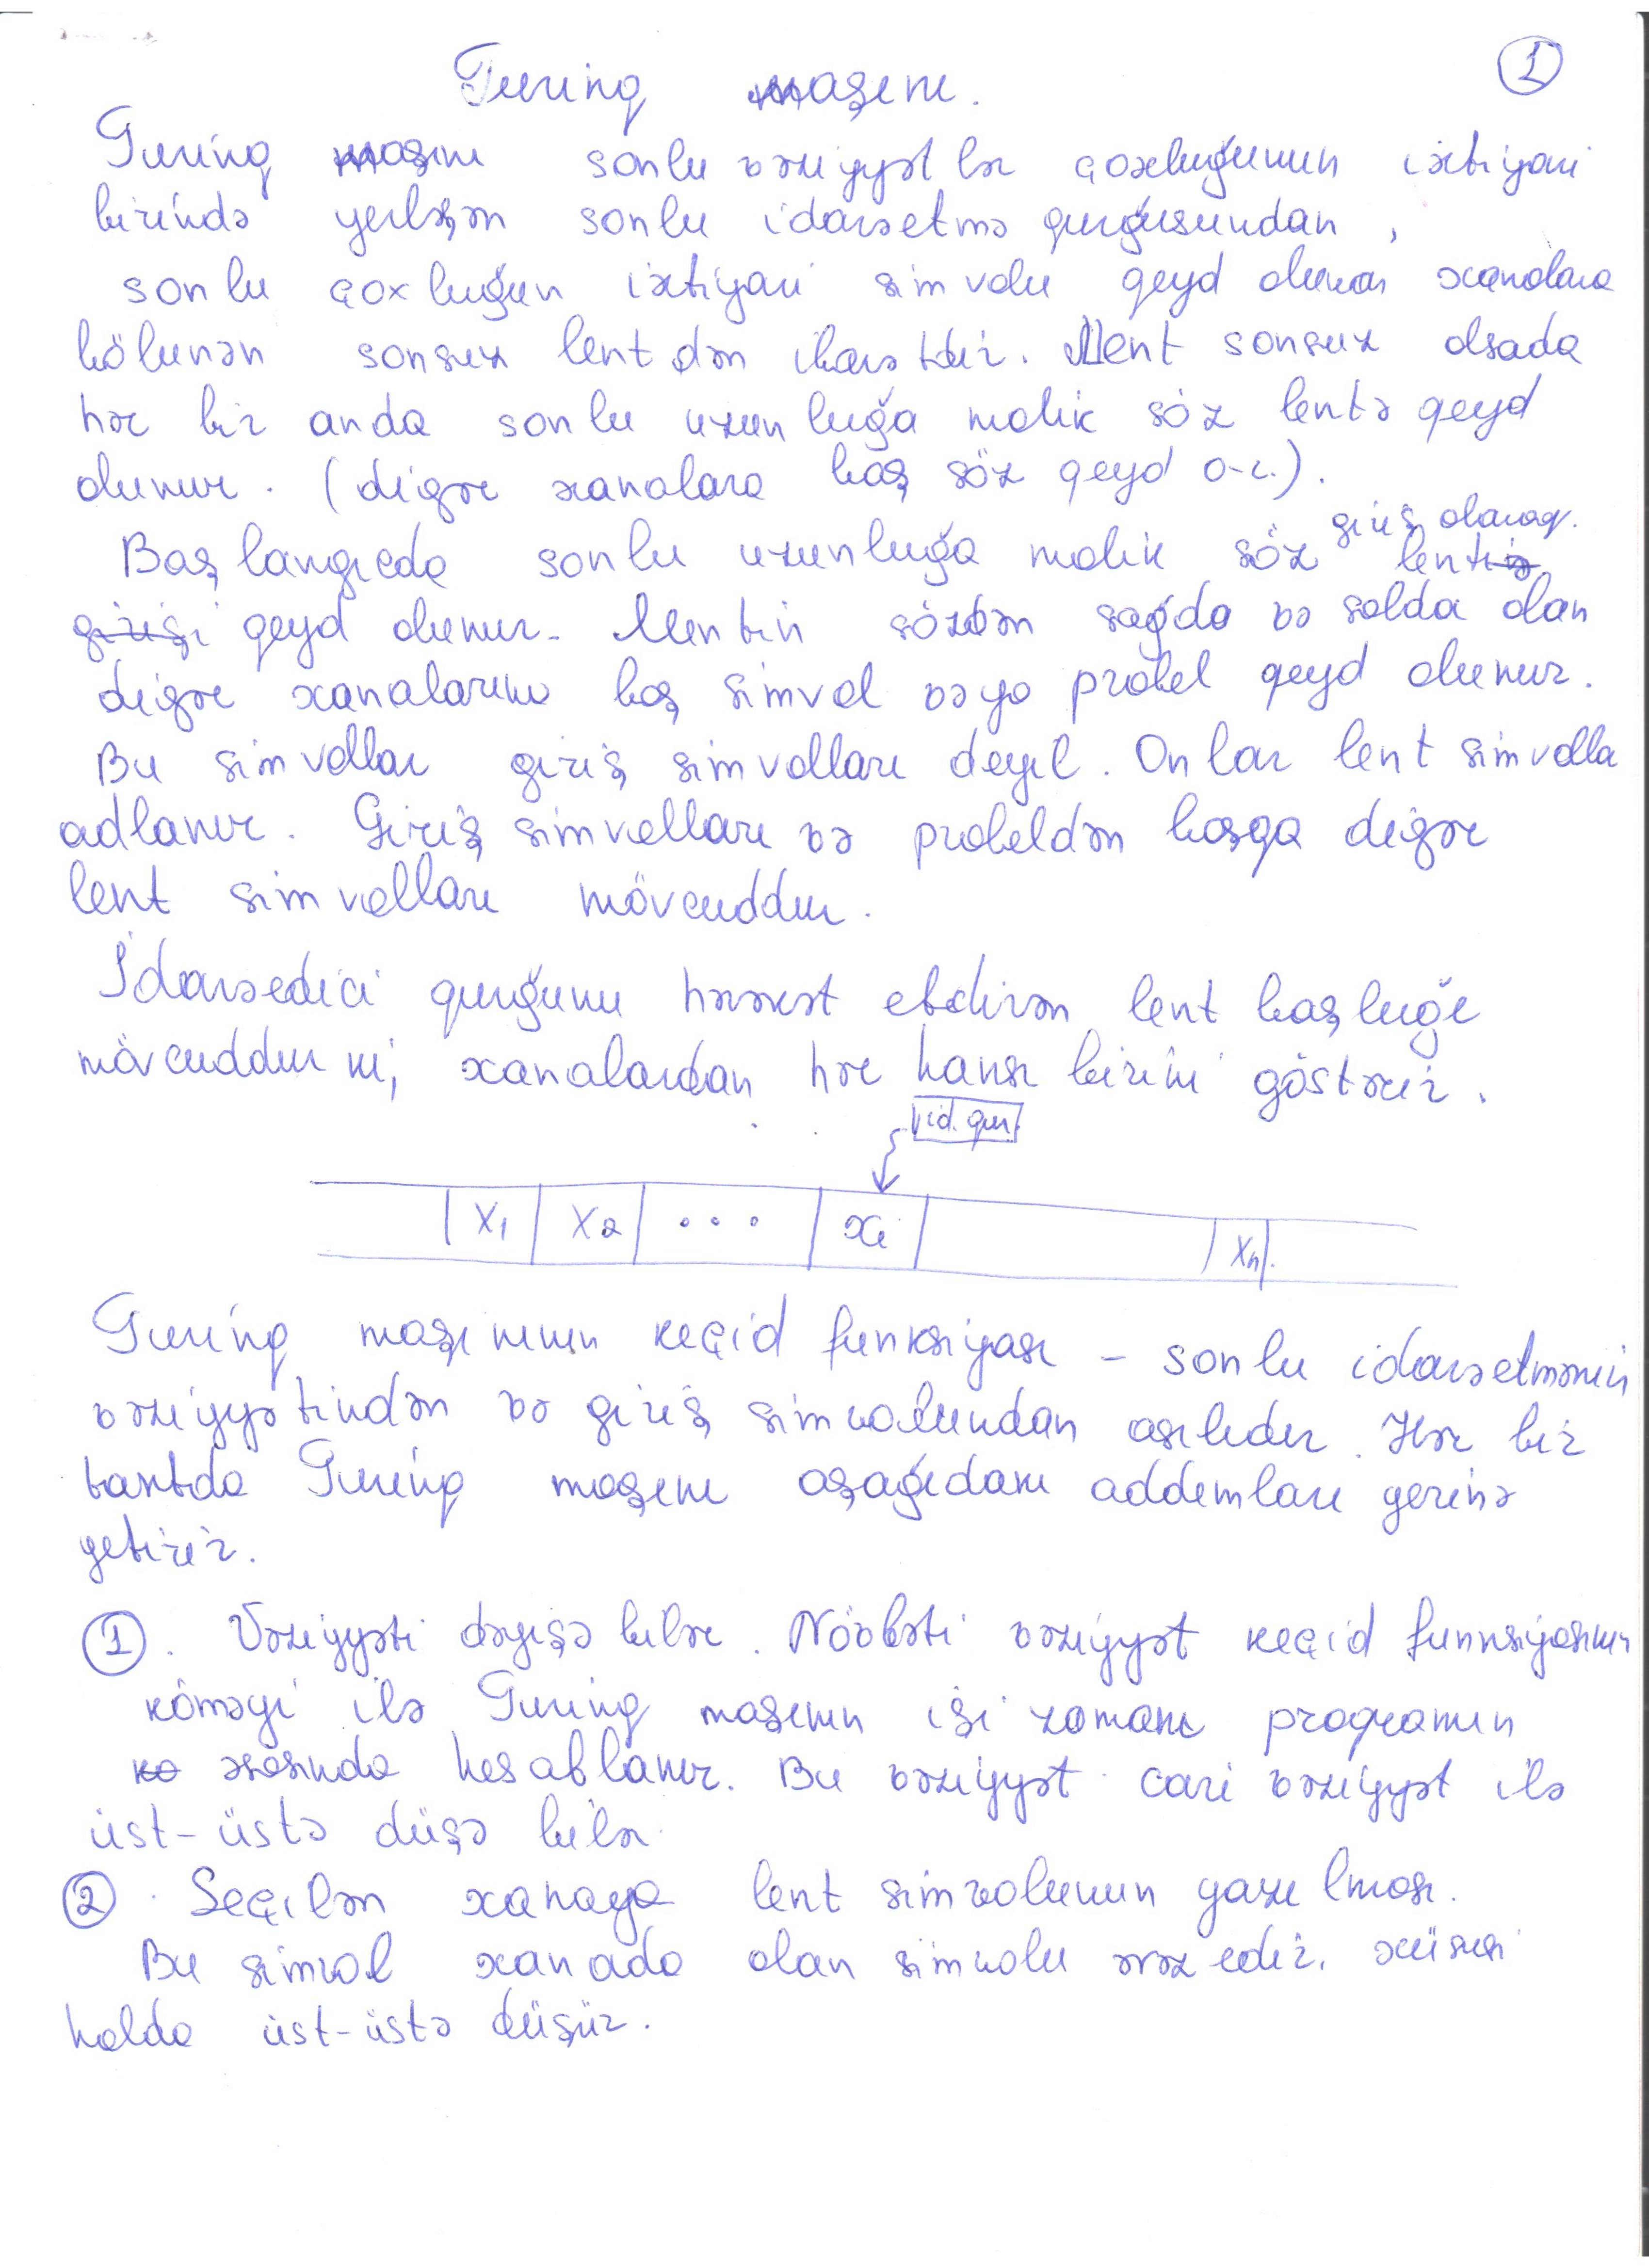 Turing maşını.
1
Turing maşını sonlu vəziyyətlər çoxluğunun ixtiyari
birində yerləşən sonlu idarəetmə qurğusundan,
sonlu çoxluğun ixtiyari simvolu qeyd olunan xanalara
bölünən sonsuz lentdən ibarətdir. Lent sonsuz olsada
hər bir anda sonlu uzunluğa malik söz lentə qeyd
olunur. (digər xanalara boş söz qeyd o-r.).
giriş olaraq.
Başlangıcda sonlu uzunluğa malik söz lentə
girişi qeyd olunur. Lentin sözdən sağda və solda olan
digər xanalarına boş simvol vəya probel qeyd olunur.
Bu simvollar giriş simvolları deyil. Onlar lent simvolla
adlanır. Giriş simvolları və probeldən başqa digər
lent simvolları mövcuddur.
İdarəedici qurğunu hərəkət etdirən lent başlığı
mövcuddur ki, xanalardan hər hansı birini göstərir.
id. qur.
X1 X2 ... Xi Xn
Turing maşınının keçid funksiyası - sonlu idarəetmənin
vəziyyətindən və giriş simvolundan asılıdır. Hər bir
taktda Turing maşını aşağıdakı addımları yerinə
yetirir.
1. Vəziyyəti dəyişə bilər. Növbəti vəziyyət keçid funksiyasının
köməyi ilə Turing maşının işi zamanı proqramın
ko əsasında hesablanır. Bu vəziyyət cari vəziyyət ilə
üst-üstə düşə bilər.
2. Seçilən xanaya lent simvolunun yazılması.
Bu simvol xanada olan simvolu əvəz edir, xüsusi
halda üst-üstə düşür.